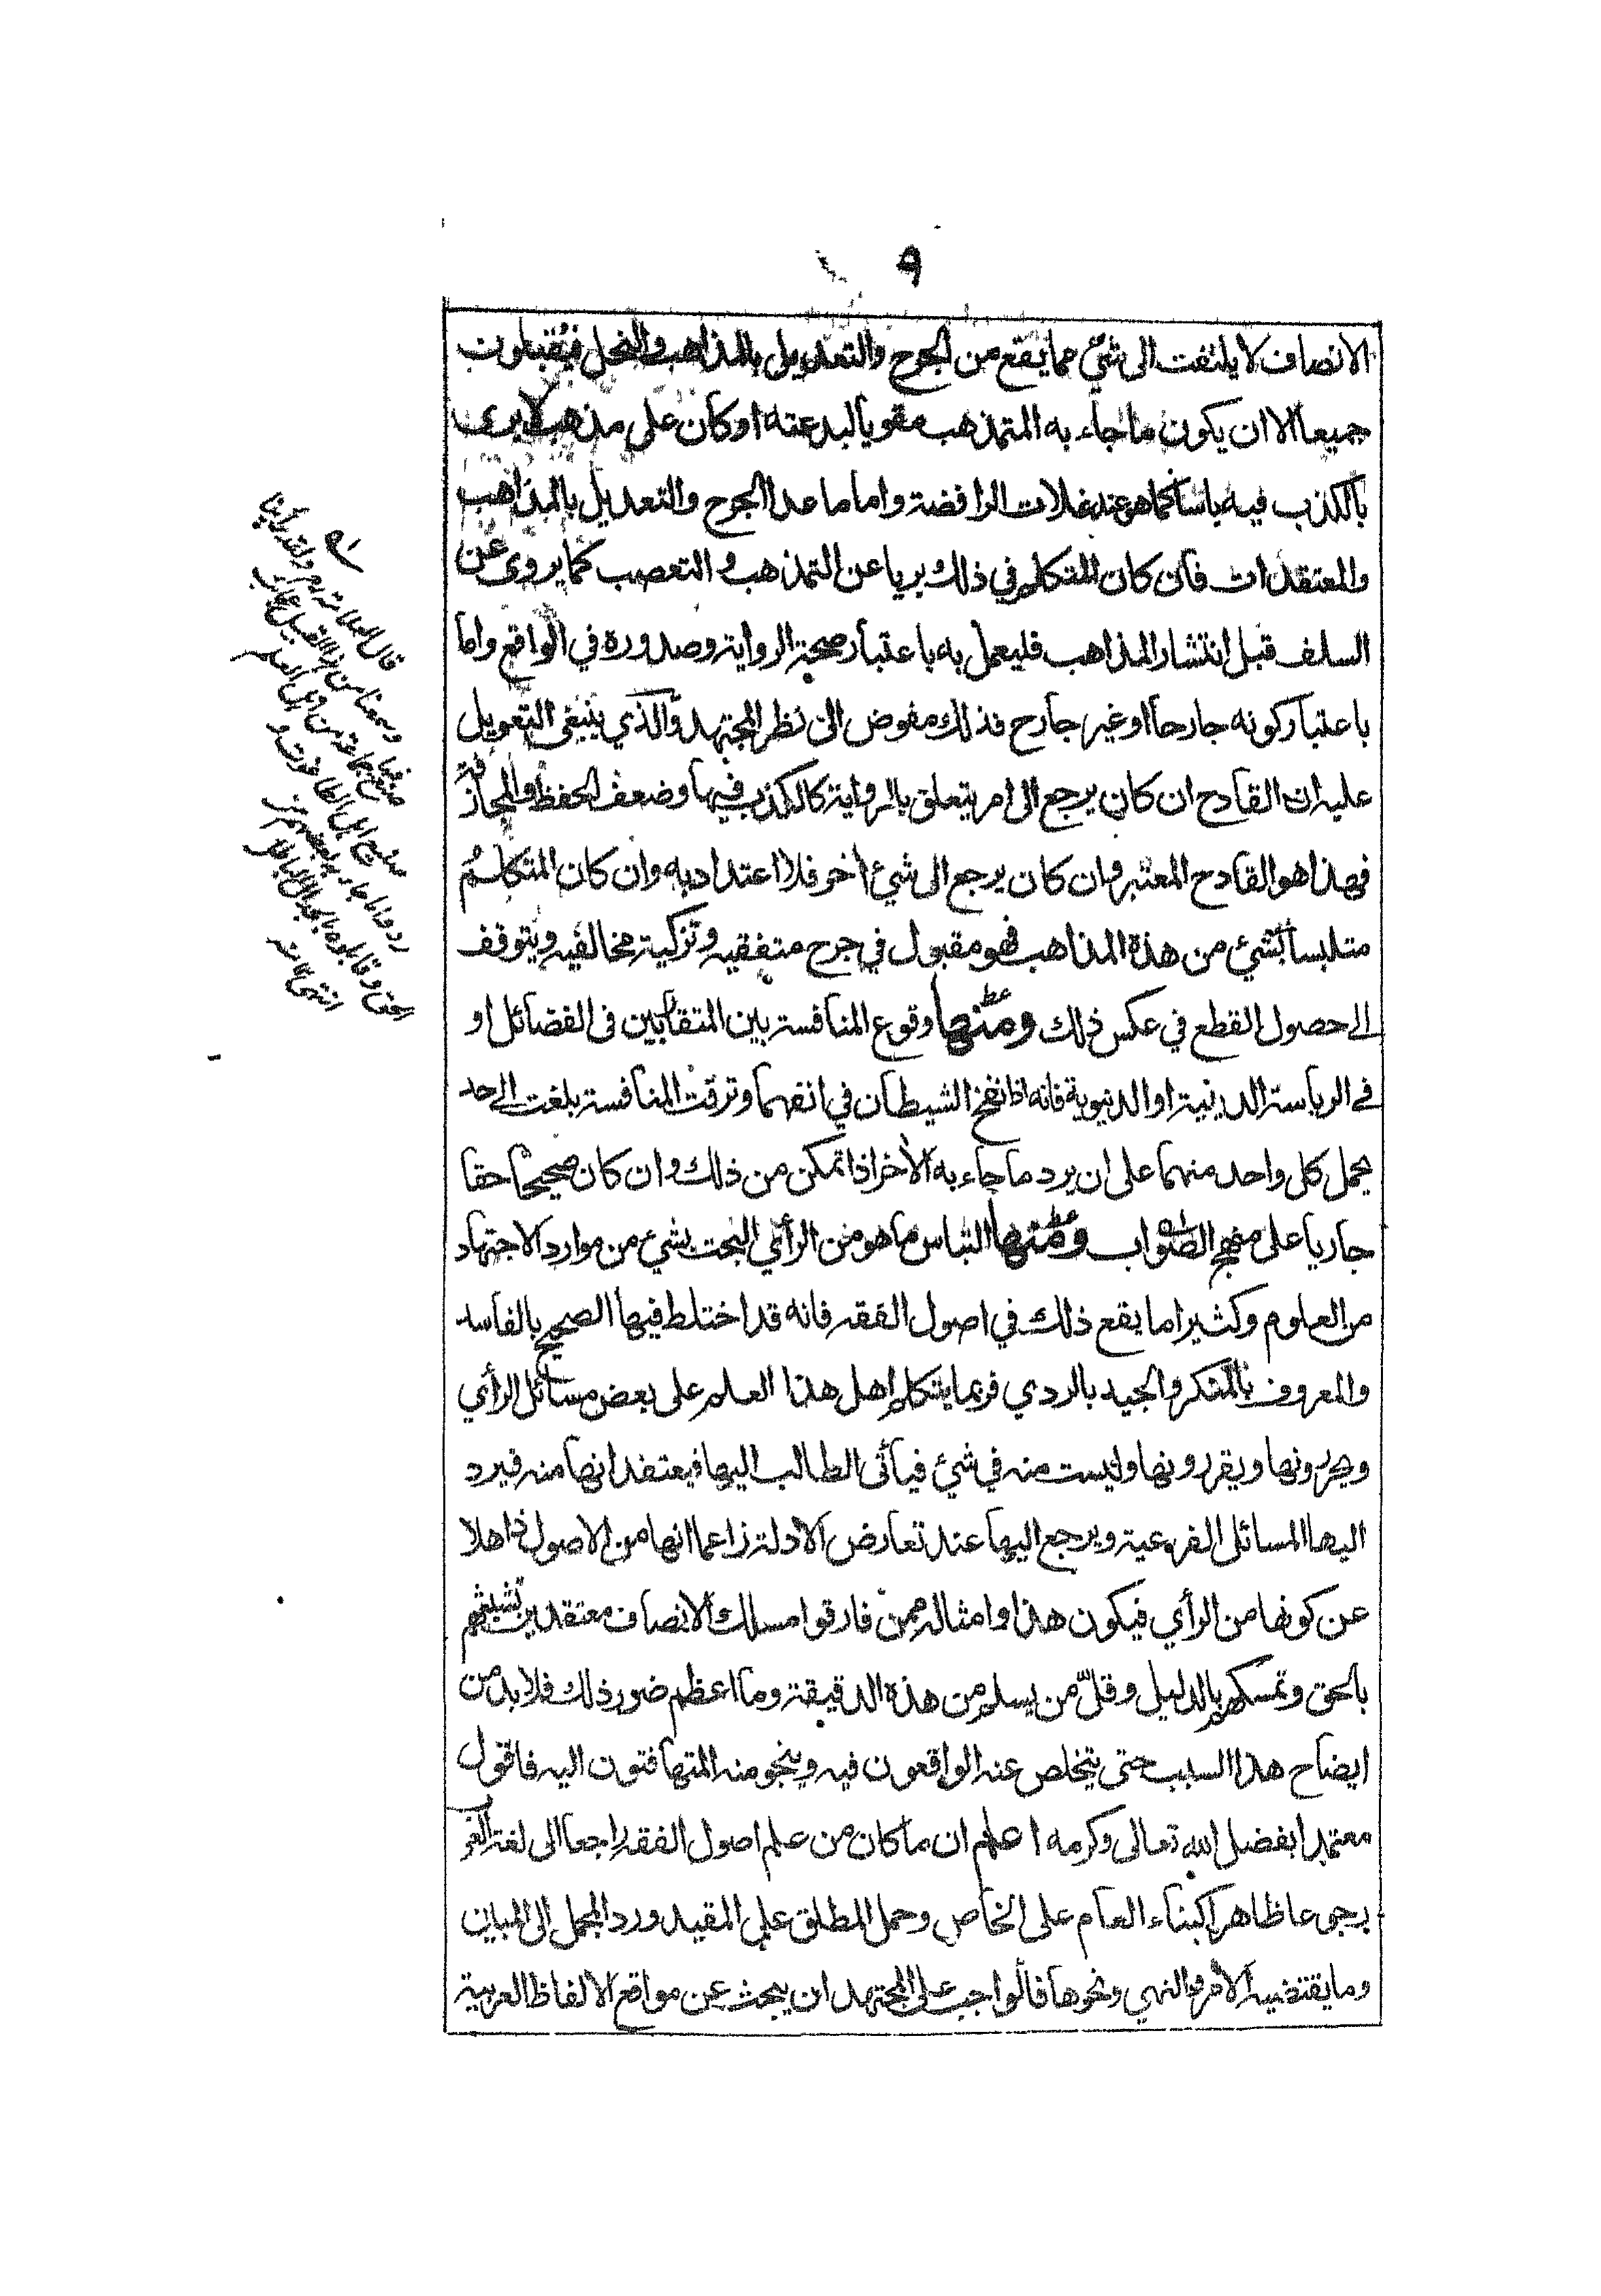 ٩
الانصاف لا يلتفت الى شيئ مما يقع من الجرح والتعديل بالمذاهب والنحل فيُقبلون
جميعا الا ان يكون ما جاء به المتمذهب مقويا لبدعته او كان على مذهب لا يرى
بالكذب فيه باسا كما هو عند غلات الرافضة واما ما عدا الجرح والتعديل بالمذاهب
والمعتقدات فان كان المتكلم في ذلك بريا عن التمذهب والتعصب كما يروى عن
السلف قبل انتشار المذاهب فليعمل به باعتبار صحة الرواية وصدوره في الواقع واما
باعتبار كونه جارحا او غير جارح فذلك مفوض الى نظر المجتهد والذي ينبغي التعويل
عليه ان القادح ان كان يرجع الى امر يتعلق بالرواية كالكذب فيها وضعف الحفظ والمجازفة
فهذا هو القادح المعتبر وان كان يرجع الى شيئ اخر فلا اعتداد به وان كان المتكلم
متلبسا بشيئ من هذه المذاهب فهو مقبول في جرح متفقيه وتزكية مخالفيه ويتوقف
الى حصول القطع في عكس ذلك ومنها وقوع المنافسة بين المتقابين فى الفضائل او
في الرياسة الدينية او الدنيوية فانه اذا نفخ الشيطان في انفهما وترقت المنافسة بلغت الى حد
يحمل كل واحد منهما على ان يرد ما جاء به الاخر اذا تمكن من ذلك وان كان صحيحا حقا
جاريا على منهج الصواب ومنها التباس ما هو من الرأي البحت بشيئ من موارد الاجتهاد
من العلوم وكثيرا ما يقع ذلك في اصول الفقه فانه قد اختلط فيها الصحيح بالفاسد
والمعروف بالمنكر والجيد بالردي فربما يتكلم اهل هذا العلم على بعض مسائل الرأي
ويحررونها ويقررونها وليست منه في شيئ فيأتى الطالب اليها فيعتقد انها منه فيرد
اليها المسائل الفرعية ويرجع اليها عند تعارض الادلة زاعما انها من الاصول ذاهلا
عن كونها من الرأي فيكون هذا وامثاله ممن فارقوا مسلك الانصاف معتقدين تشبثهم
بالحق وتمسكهم بالدليل وقلّ من يسلم من هذه الدقيقة وما اعظم ضرر ذلك فلابد من
ايضاح هذا السبب حتى يتخلص عنه الواقعون فيه وينجو منه المتهافتون اليه فاقول
معتمدا بفضل الله تعالى وكرمه اعلم ان ما كان من علم اصول الفقه راجعا الى لغة العرب
رجوعا ظاهرا كبناء العام على الخاص وحمل المطلق على المقيد ورد المجمل الى المبين
وما يقتضيه الامر والنهي ونحوها فالواجب على المجتهد ان يبحث عن مواقع الالفاظ العربية
قال العلامة رح ولقد رأينا
وسمعنا من هذا القبيل عجائب